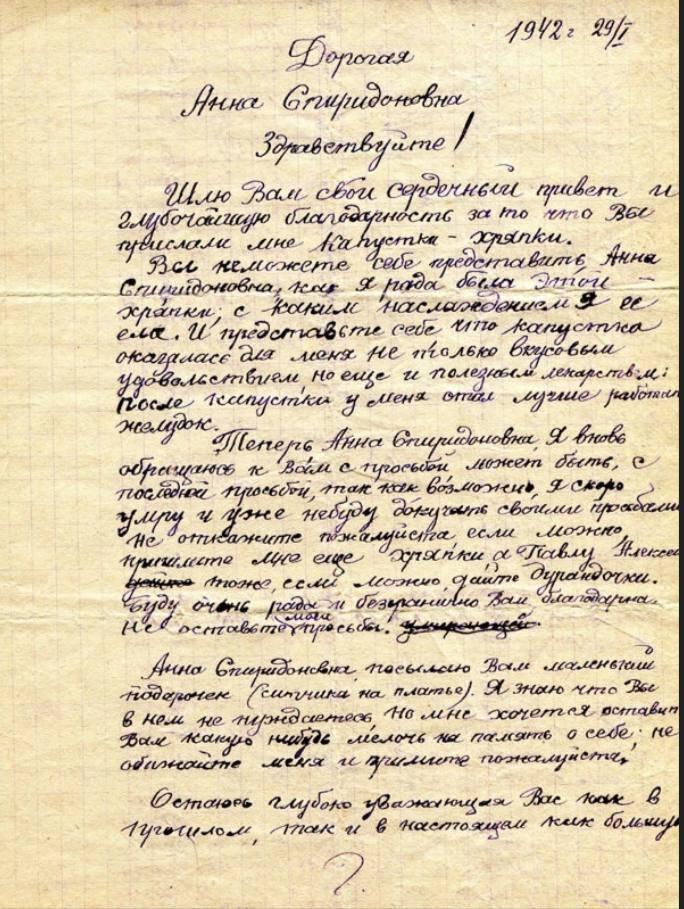 1942 г 29/I
Дорогая
Анна Спиридоновна
Здравствуйте!
Шлю Вам свой сердечный привет и
глубочайшую благодарность за то что Вы
прислали мне капустки - хряпки.
Вы неможете себе представить, Анна
Спиридоновна, как я рада была этой -
хряпки; с каким наслаждением я её
ела. И представьте себе что капустка
оказалась для меня не только вкусовым
удовольствием, но еще и полезным лекарством:
после капустки у меня стал лучше работать
желудок.
Теперь Анна Спиридоновна, Я вновь
обращаюсь к Вам с просьбой может быть, с
последней просьбой, так как возможно, я скоро
умру и уже небуду докучать своими просьбами
Не откажите пожалуйста если можно,
пришлите мне еще хряпки а Павлу Алексее
тоже, если можно дайте дурандочки.
Буду очень рада и безгранично Вам благодарна.
Не оставьте мои просьбы. умирающей.
Анна Спиридоновна, посылаю Вам маленький
подарочек (ситчика на платье). Я знаю что Вы
в нем не нуждаетесь, но мне хочется оставить
Вам какую нибудь мелочь на память о себе: не
обижайте меня и примите пожалуйста!
Остаюсь глубоко уважающая Вас как в
прошлом, так и в настоящем как большую
?